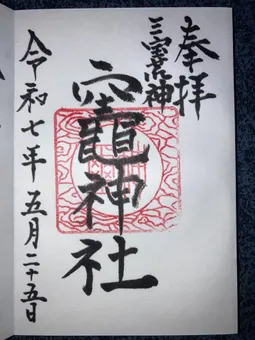 奉拝
三寳荒神
竈神社
令和七年五月二十五日